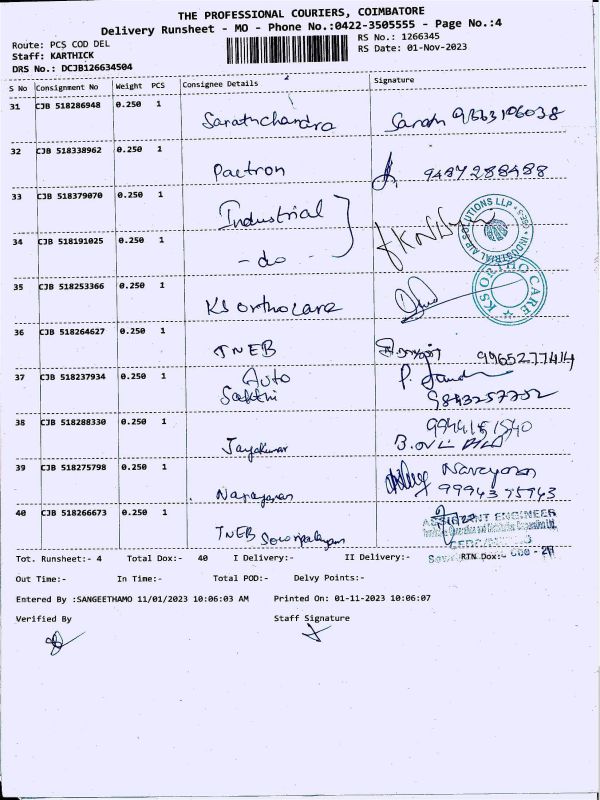 THE PROFESSIONAL COURIERS, COIMBATORE
Delivery Runsheet - MO - Phone No.:0422-3505555 - Page No.:4
Route: PCS COD DEL
RS No.: 1266345
Staff: KARTHICK
RS Date: 01-Nov-2023
DRS No.: DCJB126634504
S No Consignment No Weight PCS Consignee Details Signature
31 CJB 518286948 0.250 1
Sarathchandra Sarath 9663196038
32 CJB 518338962 0.250 1
Pactron 9487288488
33 CJB 518379070 0.250 1
Industrial
34 CJB 518191025 0.250 1
- do -
INDUSTRIAL AIR SOLUTIONS LLP
35 CJB 518253366 0.250 1
KS orthocare
KS ORTHO CARE
36 CJB 518264627 0.250 1
TNEB 9965277414
37 CJB 518237934 0.250 1
Auto
Sakthi
9843257752
38 CJB 518288330 0.250 1
Jayakumar
39 CJB 518275798 0.250 1
Narayanan Narayanan
9994375743
40 CJB 518266673 0.250 1
TNEB
ASSISTANT ENGINEER
Tot. Runsheet:- 4 Total Dox:- 40 I Delivery:- II Delivery:- RTN Dox:-
Out Time:- In Time:- Total POD:- Delvy Points:-
Entered By :SANGEETHAMO 11/01/2023 10:06:03 AM Printed On: 01-11-2023 10:06:07
Verified By Staff Signature